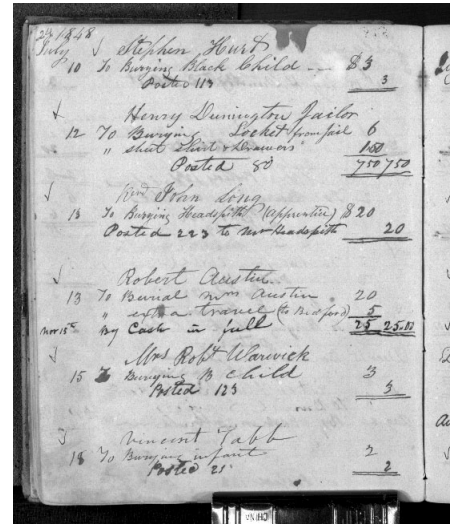 24 1848
July √ Stephen Hurt
10 To Burying Black Child -- $3
Posted 113 3
√ Henry Dunnington Jailor
12 To Burying Locket from jail 6
" sheet Shirt & Drawers 1.50
Posted 80 7.50 7.50
√ John Long
13 To Burying Headspith (apprentice) $20
Posted 223 to Mr Headspith 20
√ Robert Austin
13 To Burial Mrs Austin 20
" extra travel (to Bedford) 5
Nov 15th By Cash in full 25 25.00
√ Mrs Robt Warwick
15 To Burying B Child 3
Posted 123 3
√ Vincent Tabb
18 To Burying infant 2
Posted 25 2
CHINA